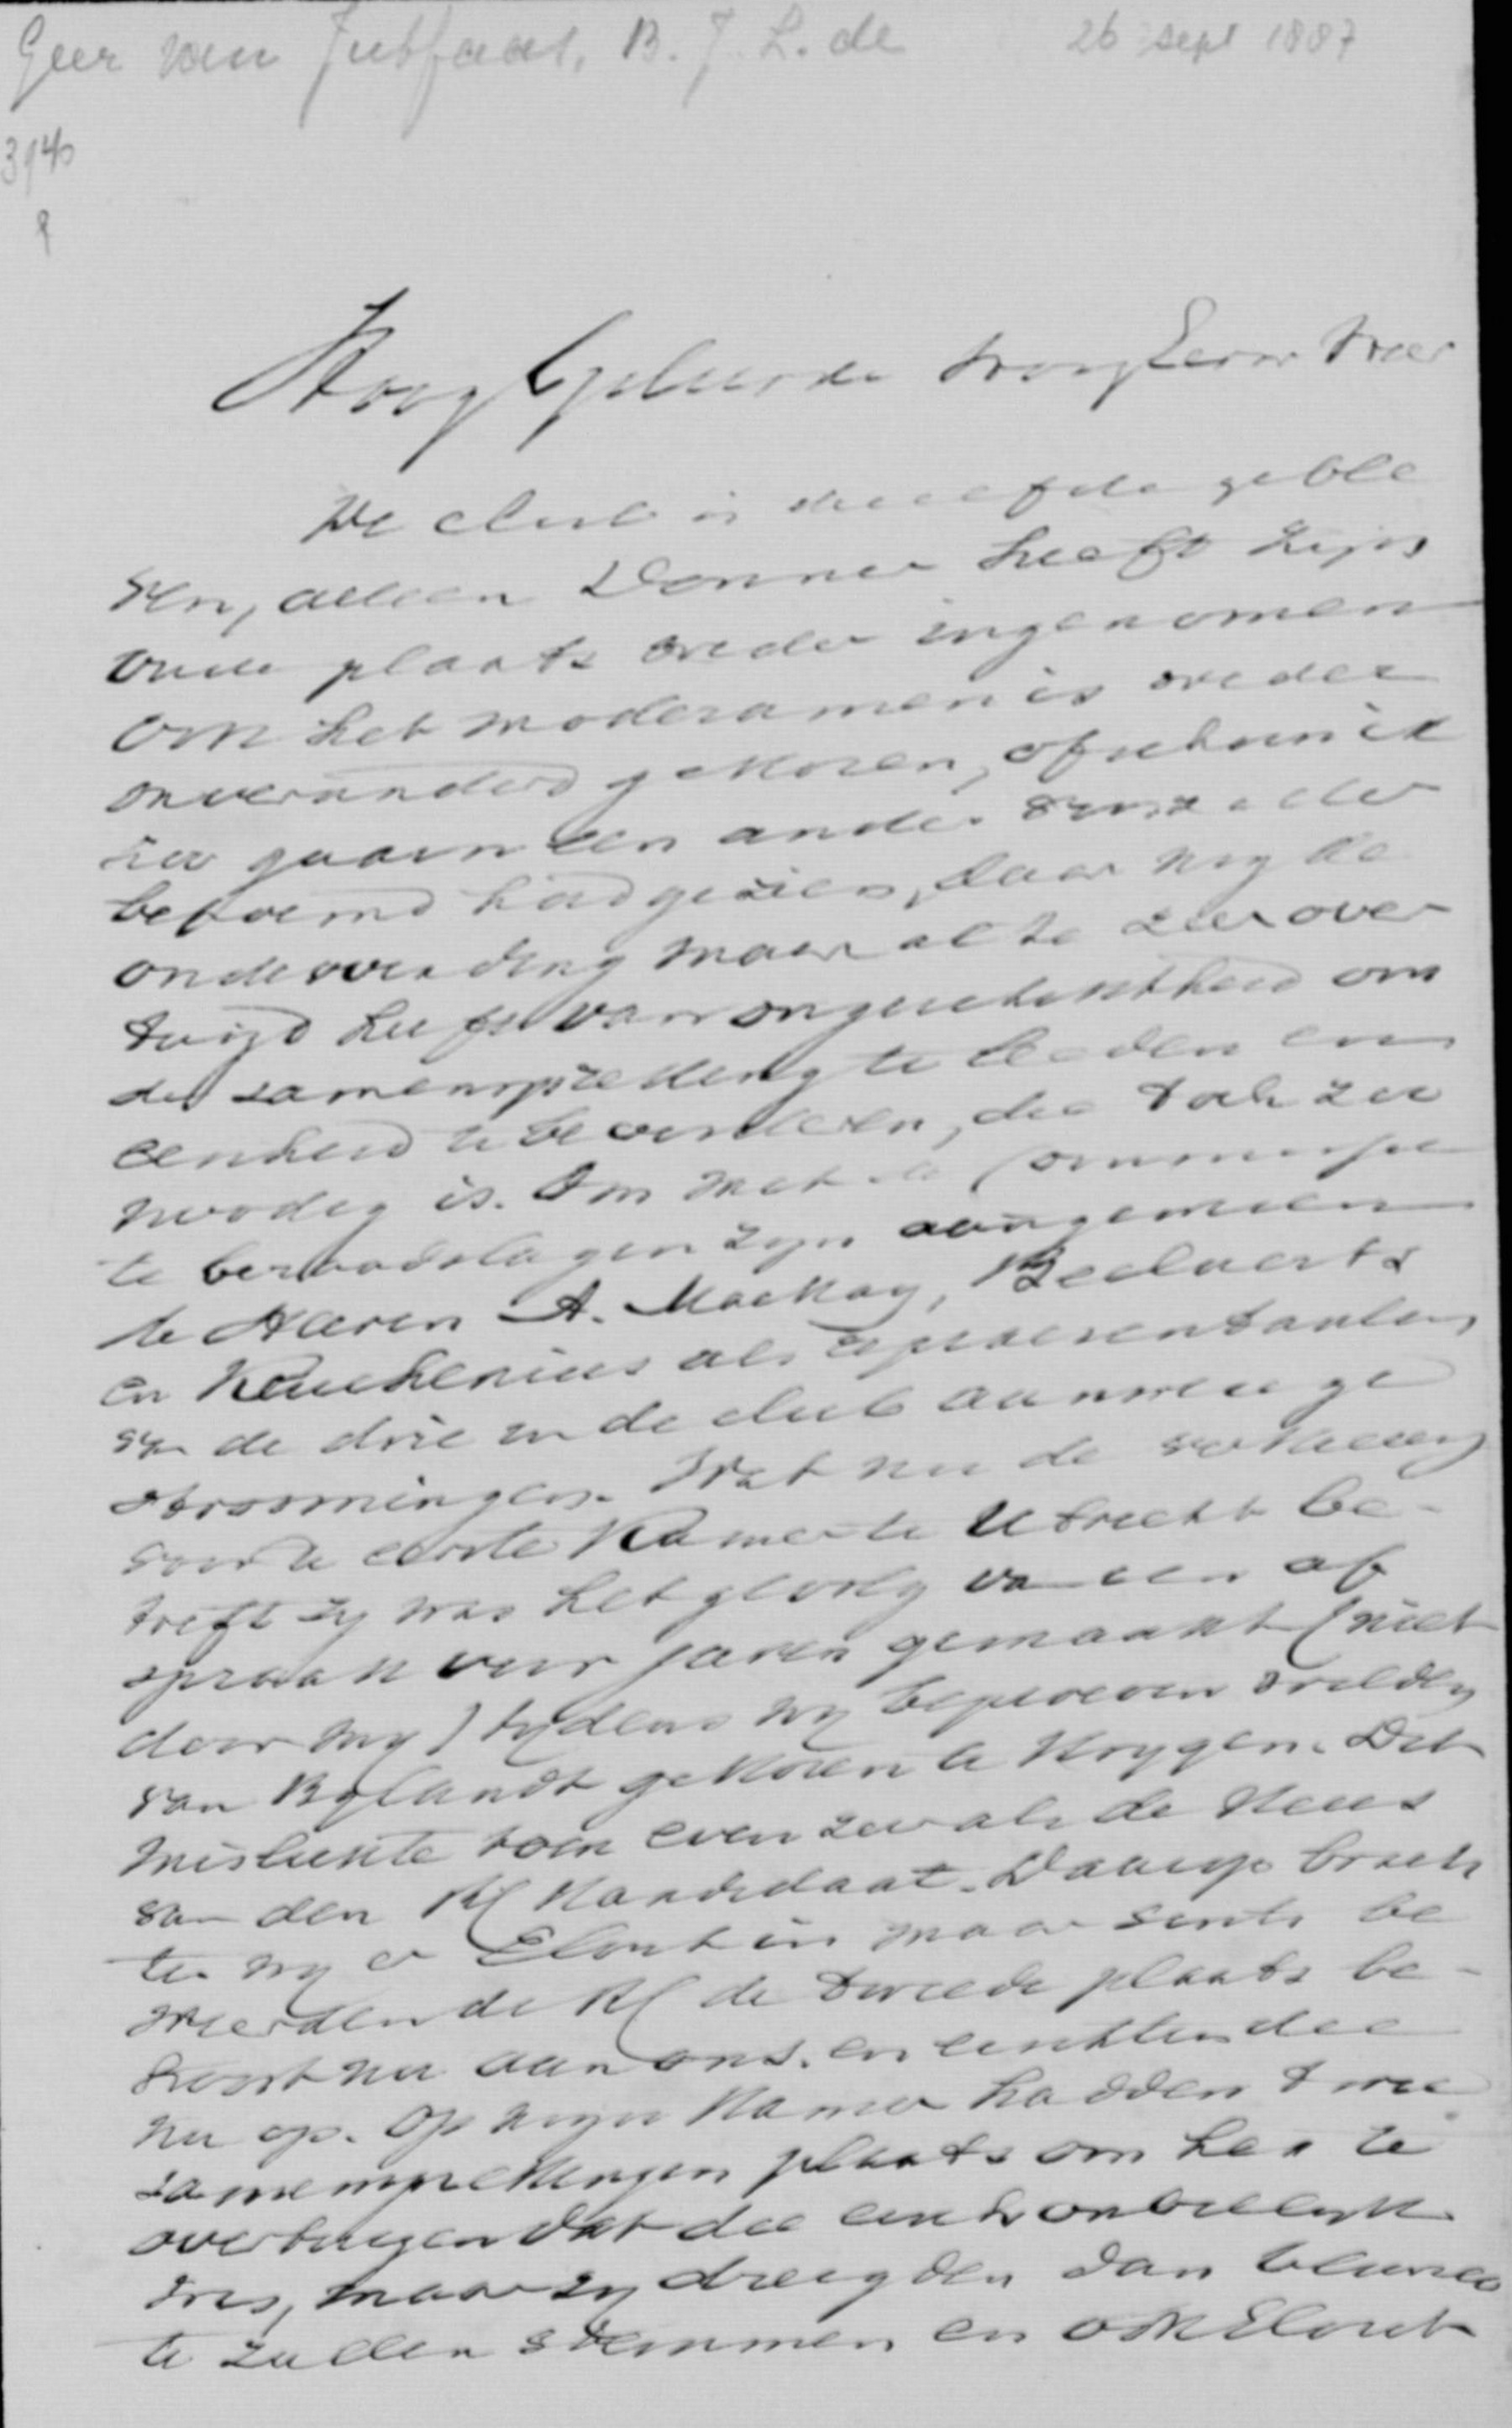 Geer van Jutfaas, B. J. L. de 26 sept 1887
3940
Hoog Geleerde Hoog Eerw Heer
De club is dezelfde geble
ven, alleen Donner heeft zijn
oude plaats weder ingenomen
Ook het moderamen is weder
onveranderd gekozen, ofschoon ik
zeer gaarne een ander
benoemd had gezien, daar mij de
ondervinding maar al te zeer over
tuigd heeft van ongeschiktheid om
de samenspreking te leiden en
eenheid te bevorderen, die toch zeer
noodig is. Om met de Commissie
te beraadslagen zijn aangewezen
de Heeren A. Mackay, Beelaerts
en Keuchenius als representanten
van de drie in de club aanwezige
stroomingen. Wat nu de verkiezing
voor de eerste Kamer te Utrecht be-
treft zij was het gevolg van een af
spraak voor jaren gemaakt (niet
door mij) tijdens wij beproeven wilden
van Bylandt gekozen te krijgen. Dit
mislukte toen evenzeer als de keus
van den RC Kandidaat. Daarop brach
ten wij er Elout in maar sints be
weerden de RC de tweede plaats be-
hoort nu aan ons. en eischten die
nu op. Op mijn Kamer hadden twee
samensprekingen plaats om hen te
overtuigen dat die eisch onbillijk
was, maar zij dreigden dan blanco
te zullen stemmen en ook Elout